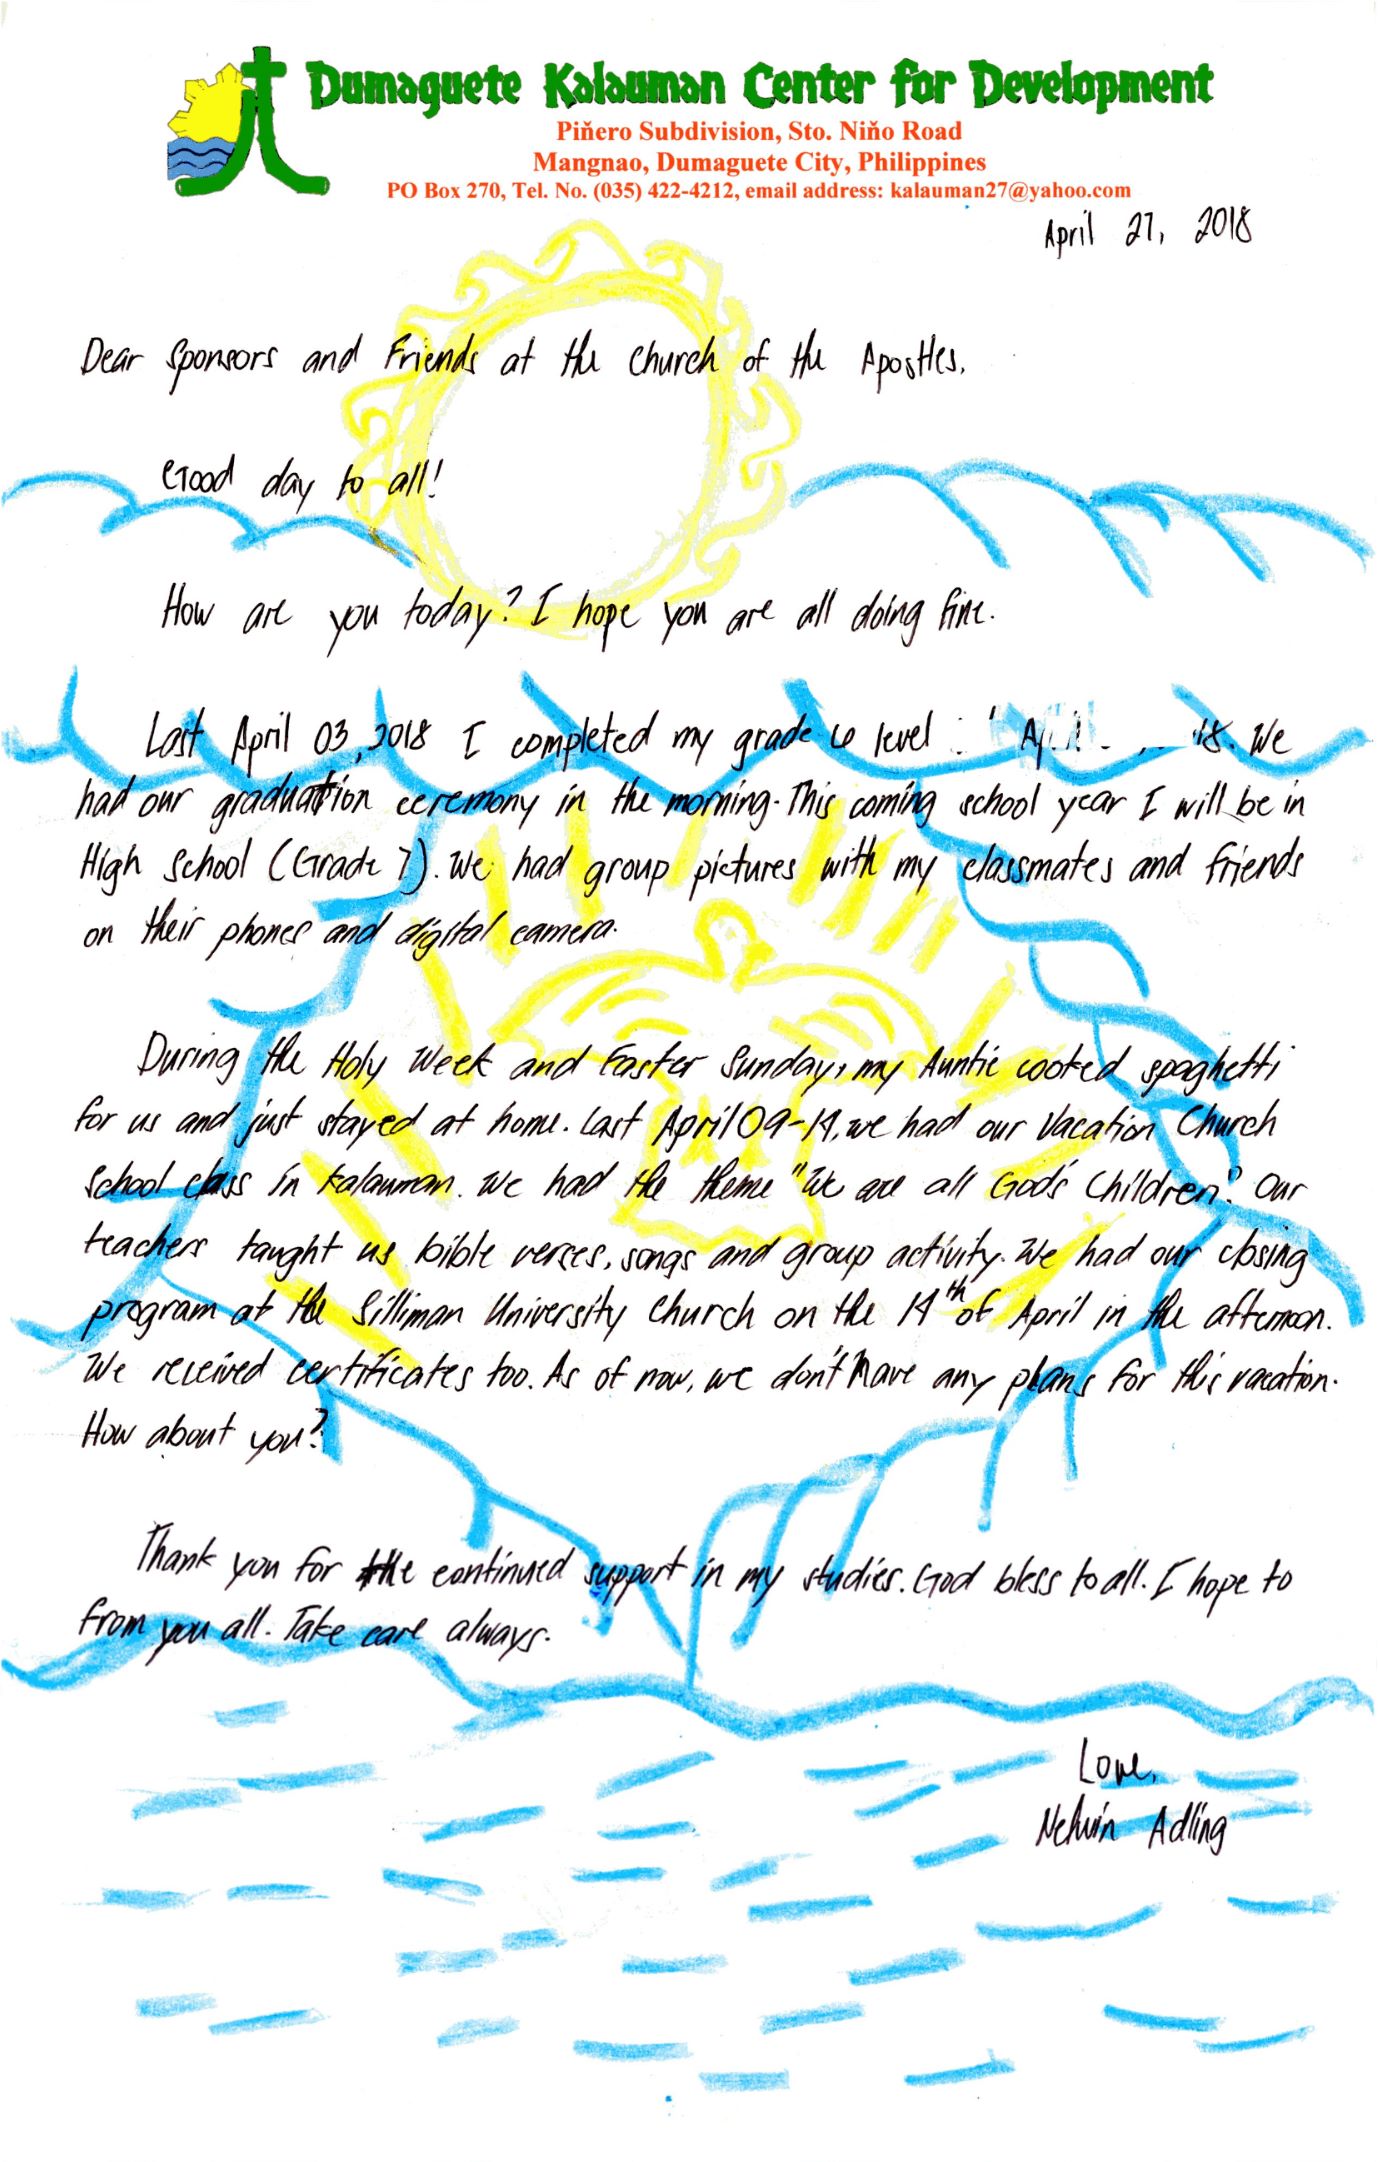 Dumaguete Kalauman Center for Development
Piñero Subdivision, Sto. Niño Road
Mangnao, Dumaguete City, Philippines
PO Box 270, Tel. No. (035) 422-4212, email address: kalauman27@yahoo.com
April 27, 2018
Dear Sponsors and Friends at the Church of the Apostles,
Good day to all!
How are you today? I hope you are all doing fine.
Last April 03, 2018 I completed my grade 6 level 18. We
had our graduation ceremony in the morning. This coming school year I will be in
High School (Grade 7). We had group pictures with my classmates and friends
on their phones and digital camera.
During the Holy Week and Easter Sunday, my Auntie cooked spaghetti
for us and just stayed at home. Last April 09-14, we had our Vacation Church
School class in Kalauman. We had the theme "We are all God's Children". Our
teachers taught us bible verses, songs and group activity. We had our closing
program at the Silliman University Church on the 14th of April in the afternoon.
We received certificates too. As of now, we don't have any plans for this vacation.
How about you?
Thank you for the continued support in my studies. God bless to all. I hope to
from you all. Take care always.
Love,
Nelvin Adling